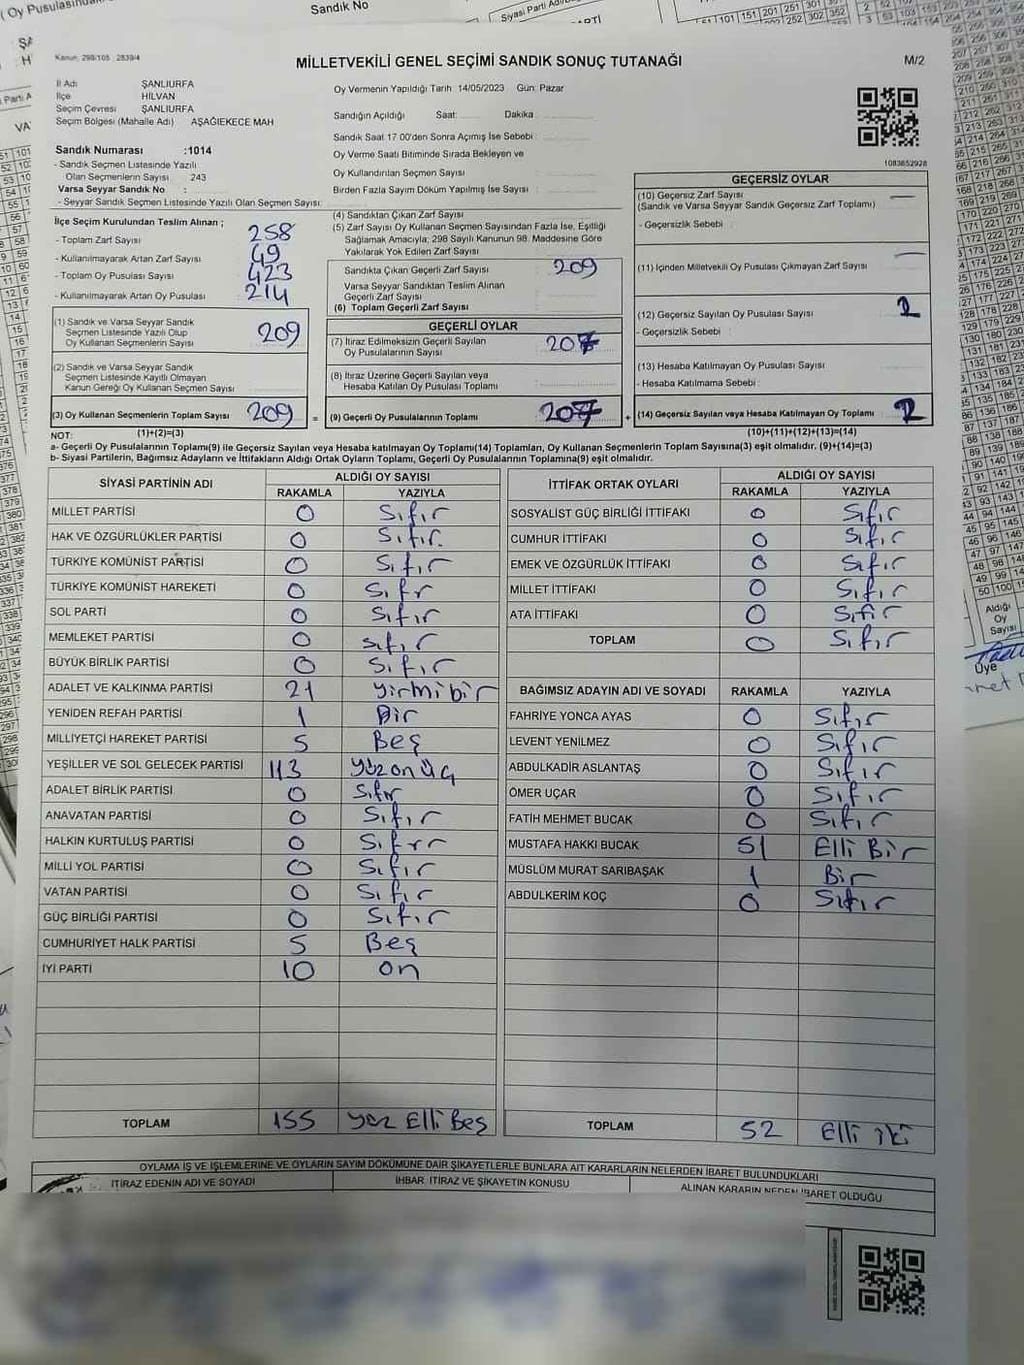 Sandık No
Kanun, 298/105 2839/4
MİLLETVEKİLİ GENEL SEÇİMİ SANDIK SONUÇ TUTANAĞI
M/2
İl Adı ŞANLIURFA
İlçe HİLVAN
Seçim Çevresi ŞANLIURFA
Seçim Bölgesi (Mahalle Adı) AŞAĞIEKECE MAH
Sandık Numarası :1014
- Sandık Seçmen Listesinde Yazılı
Olan Seçmenlerin Sayısı 243
Varsa Seyyar Sandık No :
- Seyyar Sandık Seçmen Listesinde Yazılı Olan Seçmen Sayısı:
Oy Vermenin Yapıldığı Tarih 14/05/2023 Gün: Pazar
Sandığın Açıldığı Saat: Dakika
Sandık Saat 17.00'den Sonra Açımış İse Sebebi
Oy Verme Saati Bitiminde Sırada Bekleyen ve
Oy Kullandırılan Seçmen Sayısı
Birden Fazla Sayım Döküm Yapılmış İse Sayısı
1083652928
İlçe Seçim Kurulundan Teslim Alınan ;
- Toplam Zarf Sayısı 258
- Kullanılmayarak Artan Zarf Sayısı 49
- Toplam Oy Pusulası Sayısı 423
- Kullanılmayarak Artan Oy Pusulası 214
(1) Sandık ve Varsa Seyyar Sandık
Seçmen Listesinde Yazılı Olup
Oy Kullanan Seçmenlerin Sayısı 209
(2) Sandık ve Varsa Seyyar Sandık
Seçmen Listesinde Kayıtlı Olmayan
Kanun Gereği Oy Kullanan Seçmen Sayısı
(3) Oy Kullanan Seçmenlerin Toplam Sayısı 209 =
(1)+(2)=(3)
(4) Sandıktan Çıkan Zarf Sayısı
(5) Zarf Sayısı Oy Kullanan Seçmen Sayısından Fazla İse, Eşitliği
Sağlamak Amacıyla; 298 Sayılı Kanunun 98. Maddesine Göre
Yakılarak Yok Edilen Zarf Sayısı
Sandıkta Çıkan Geçerli Zarf Sayısı 209
Varsa Seyyar Sandıktan Teslim Alınan
Geçerli Zarf Sayısı
(6) Toplam Geçerli Zarf Sayısı
GEÇERLİ OYLAR
(7) İtiraz Edilmeksizin Geçerli Sayılan
Oy Pusulalarının Sayısı 207
(8) İtiraz Üzerine Geçerli Sayılan veya
Hesaba Katılan Oy Pusulası Toplamı
(9) Geçerli Oy Pusulalarının Toplamı 207 +
GEÇERSİZ OYLAR
(10) Geçersiz Zarf Sayısı
(Sandık ve Varsa Seyyar Sandık Geçersiz Zarf Toplamı)
- Geçersizlik Sebebi :
(11) İçinden Milletvekili Oy Pusulası Çıkmayan Zarf Sayısı
(12) Geçersiz Sayılan Oy Pusulası Sayısı 2
- Geçersizlik Sebebi :
(13) Hesaba Katılmayan Oy Pusulası Sayısı
- Hesaba Katılmama Sebebi :
(14) Geçersiz Sayılan veya Hesaba Katılmayan Oy Toplamı 2
(10)+(11)+(12)+(13)=(14)
NOT:
a- Geçerli Oy Pusulalarının Toplamı(9) ile Geçersiz Sayılan veya Hesaba katılmayan Oy Toplamı(14) Toplamları, Oy Kullanan Seçmenlerin Toplam Sayısına(3) eşit olmalıdır. (9)+(14)=(3)
b- Siyasi Partilerin, Bağımsız Adayların ve İttifakların Aldığı Ortak Oyların Toplamı, Geçerli Oy Pusulalarının Toplamına(9) eşit olmalıdır.
SİYASİ PARTİNİN ADI ALDIĞI OY SAYISI
RAKAMLA YAZIYLA
MİLLET PARTİSİ 0 Sıfır
HAK VE ÖZGÜRLÜKLER PARTİSİ 0 Sıfır.
TÜRKİYE KOMÜNİST PARTİSİ 0 Sıfır
TÜRKİYE KOMÜNİST HAREKETİ 0 Sıfr
SOL PARTİ 0 Sıfır
MEMLEKET PARTİSİ 0 sıfır
BÜYÜK BİRLİK PARTİSİ 0 Sıfır
ADALET VE KALKINMA PARTİSİ 21 yirmibir
YENİDEN REFAH PARTİSİ 1 Bir
MİLLİYETÇİ HAREKET PARTİSİ 5 Beş
YEŞİLLER VE SOL GELECEK PARTİSİ 113 yüzonüç
ADALET BİRLİK PARTİSİ 0 Sıfır
ANAVATAN PARTİSİ 0 Sıfır
HALKIN KURTULUŞ PARTİSİ 0 Sıfır
MİLLİ YOL PARTİSİ 0 Sıfır
VATAN PARTİSİ 0 Sıfır
GÜÇ BİRLİĞİ PARTİSİ 0 Sıfır
CUMHURİYET HALK PARTİSİ 5 Beş
İYİ PARTİ 10 on
TOPLAM 155 yüz Elli Beş
İTTİFAK ORTAK OYLARI ALDIĞI OY SAYISI
RAKAMLA YAZIYLA
SOSYALİST GÜÇ BİRLİĞİ İTTİFAKI 0 Sıfır
CUMHUR İTTİFAKI 0 Sıfır
EMEK VE ÖZGÜRLÜK İTTİFAKI 0 Sıfır
MİLLET İTTİFAKI 0 Sıfır
ATA İTTİFAKI 0 Sıfır
TOPLAM 0 Sıfır
BAĞIMSIZ ADAYIN ADI VE SOYADI RAKAMLA YAZIYLA
FAHRİYE YONCA AYAS 0 Sıfır
LEVENT YENİLMEZ 0 Sıfır
ABDULKADİR ASLANTAŞ 0 Sıfır
ÖMER UÇAR 0 Sıfır
FATİH MEHMET BUCAK 0 Sıfır
MUSTAFA HAKKI BUCAK 51 Elli Bir
MÜSLÜM MURAT SARIBAŞAK 1 Bir
ABDULKERİM KOÇ 0 Sıfır
TOPLAM 52 Elli iki
OYLAMA İŞ VE İŞLEMLERİNE VE OYLARIN SAYIM DÖKÜMÜNE DAİR ŞİKAYETLERLE BUNLARA AİT KARARLARIN NELERDEN İBARET BULUNDUKLARI
İTİRAZ EDENİN ADI VE SOYADI
İHBAR, İTİRAZ VE ŞİKAYETİN KONUSU
ALINAN KARARIN NEDEN İBARET OLDUĞU
Aldığı
Oy
Sayısı
Üye